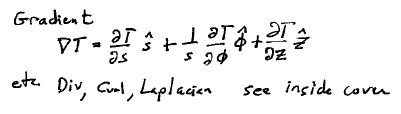 Gradient
∇T = ∂T/∂s ŝ + 1/s ∂T/∂φ φ̂ + ∂T/∂z ẑ
etc. Div, Curl, Laplacian see inside cover